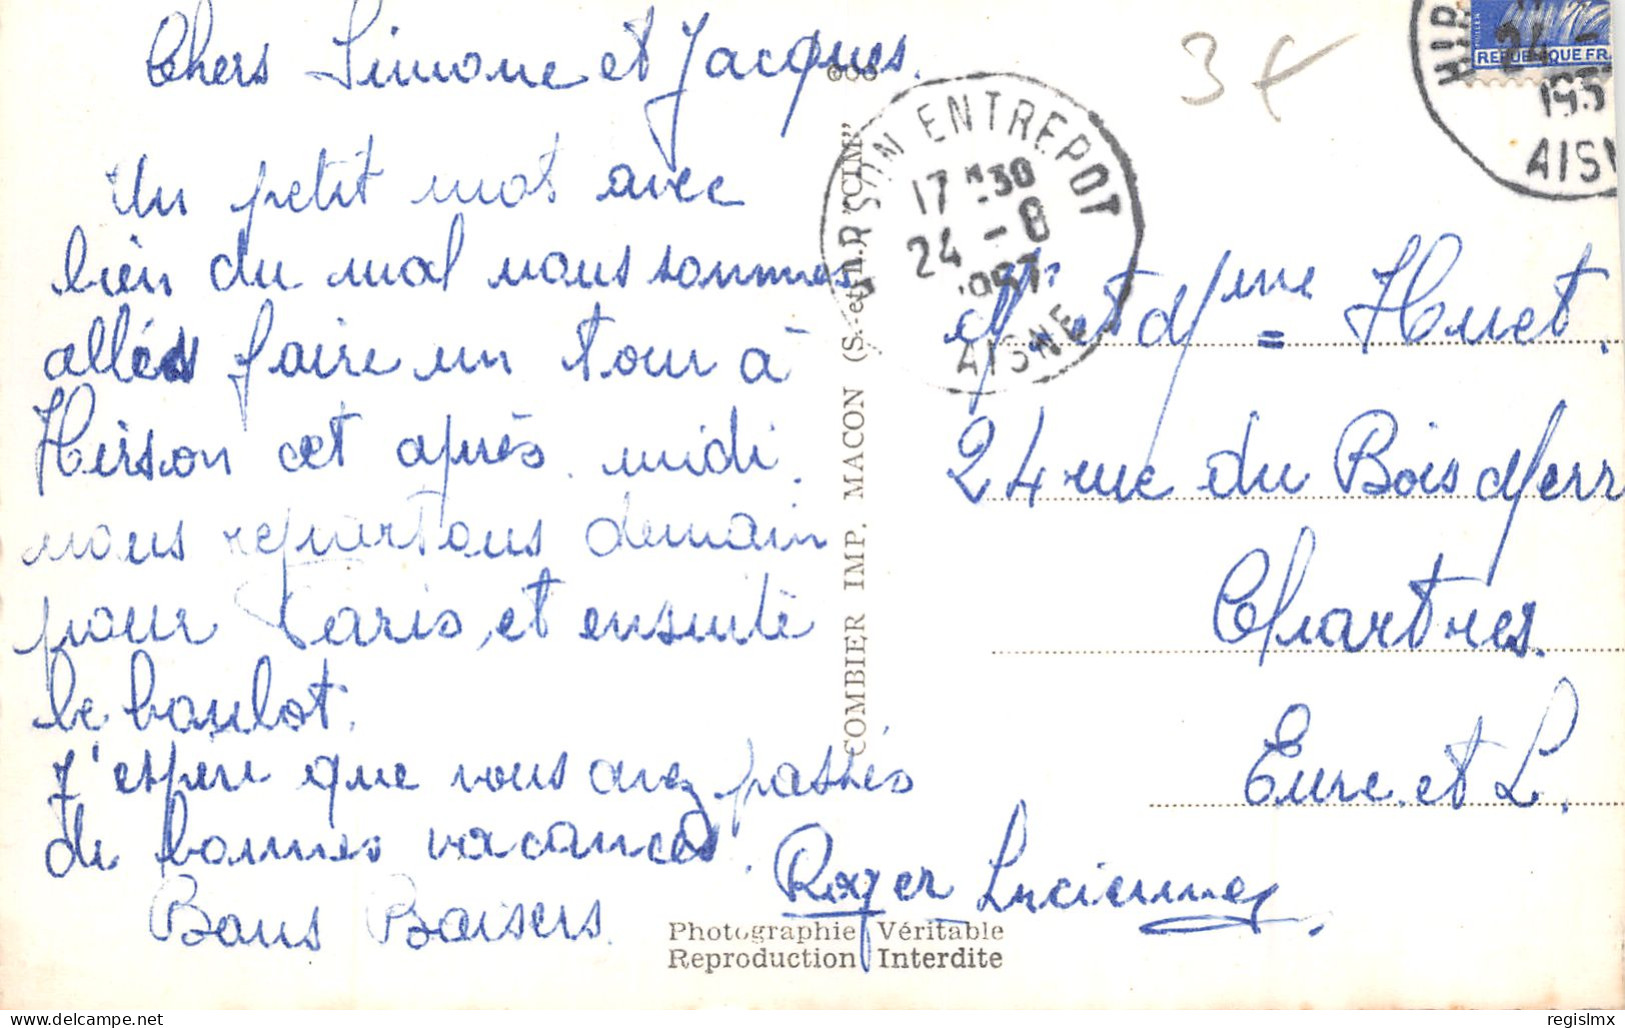 Chers Simone et Jacques.
Un petit mot avec
bien du mal nous sommes
allés faire un tour à
Hirson cet après midi.
nous repartons demain
pour Paris, et ensuite
le boulot.
J'espère que vous avez passés
de bonnes vacances.
Bons Baisers.
Roger Lucienne
Photographie Véritable
Reproduction Interdite
COMBIER IMP. MACON (S.-et-L.) "CIM"
HIRSON ENTREPOT
17 H 30
24 - 8
1957
AISNE
3 €
24 -
195
AISN
REPUBLIQUE FRA
Mr et Mme Huet.
24 rue du Bois Merr
Chartres.
Eure et L.
www.delcampe.net
regislmx